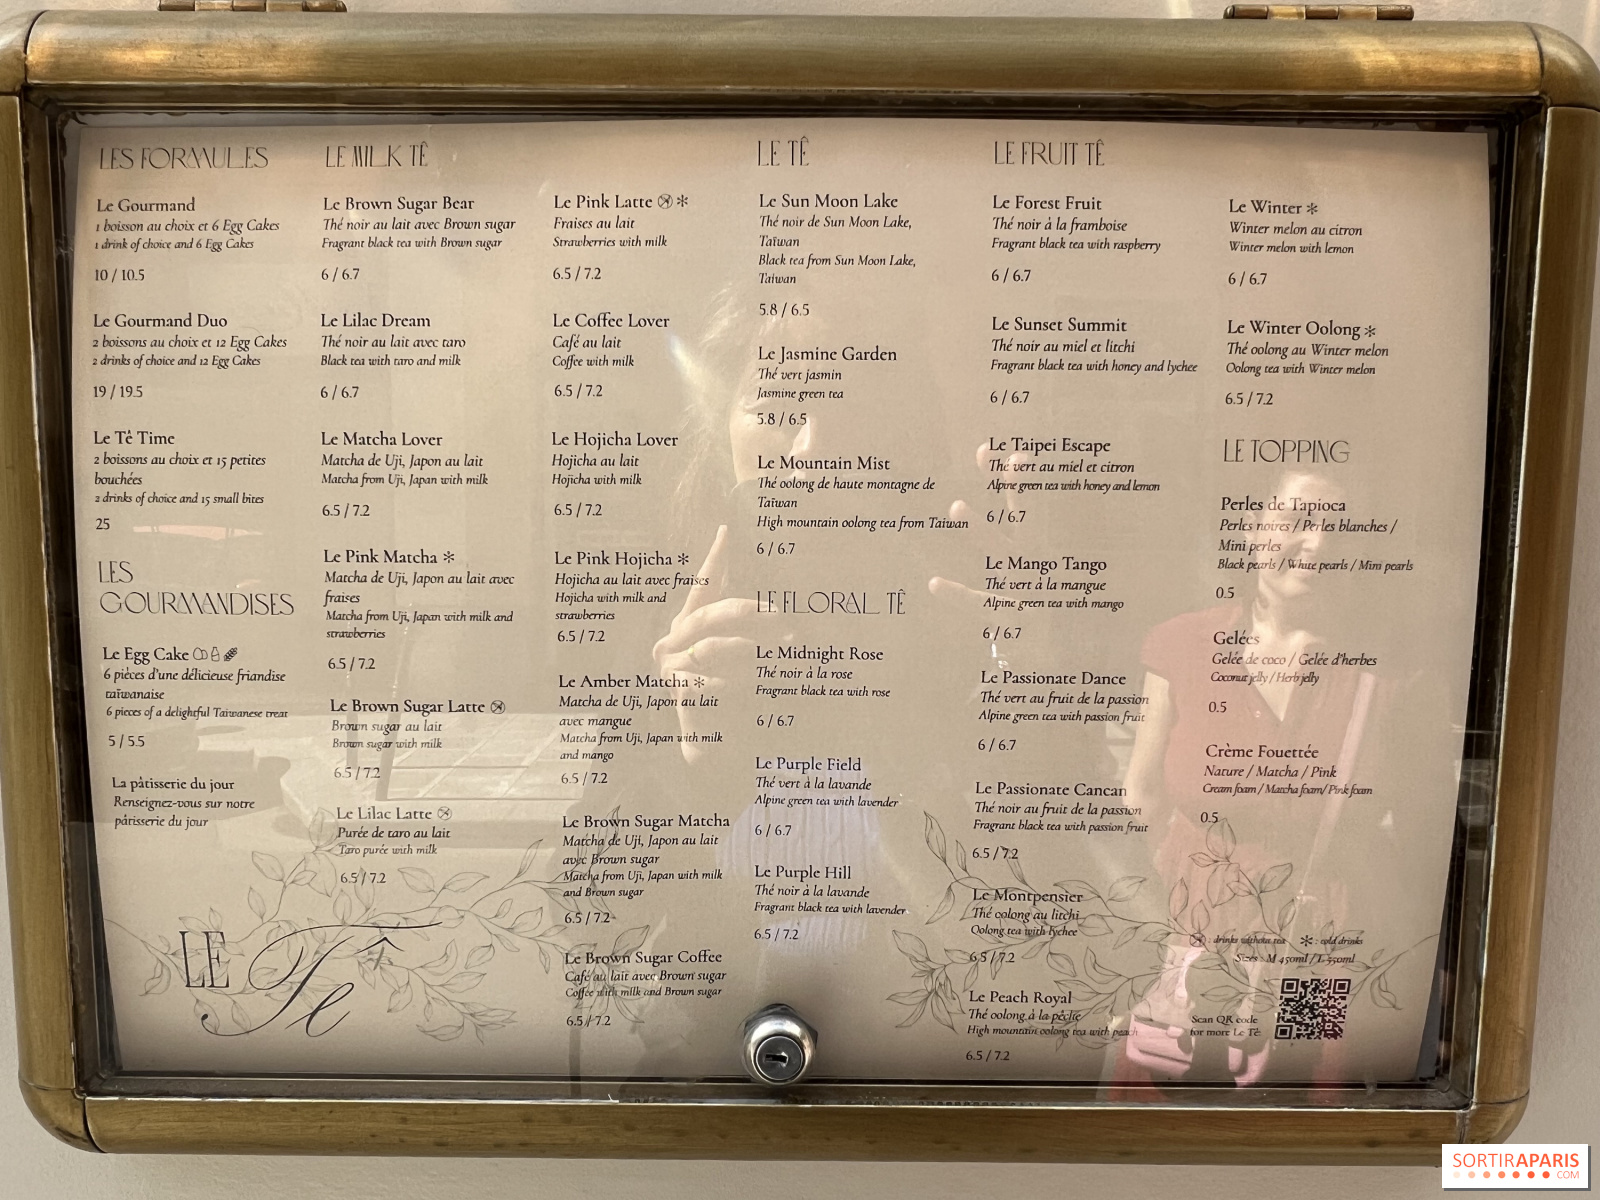 LES FORMULES
Le Gourmand
1 boisson au choix et 6 Egg Cakes
1 drink of choice and 6 Egg Cakes
10 / 10.5
Le Gourmand Duo
2 boissons au choix et 12 Egg Cakes
2 drinks of choice and 12 Egg Cakes
19 / 19.5
Le Tê Time
2 boissons au choix et 15 petites
bouchées
2 drinks of choice and 15 small bites
25
LES
GOURMANDISES
Le Egg Cake
6 pièces d'une délicieuse friandise
taïwanaise
6 pieces of a delightful Taiwanese treat
5 / 5.5
La pâtisserie du jour
Renseignez-vous sur notre
pâtisserie du jour
LE Tê
LE MILK TÊ
Le Brown Sugar Bear
Thé noir au lait avec Brown sugar
Fragrant black tea with Brown sugar
6 / 6.7
Le Lilac Dream
Thé noir au lait avec taro
Black tea with taro and milk
6 / 6.7
Le Matcha Lover
Matcha de Uji, Japon au lait
Matcha from Uji, Japan with milk
6.5 / 7.2
Le Pink Matcha *
Matcha de Uji, Japon au lait avec
fraises
Matcha from Uji, Japan with milk and
strawberries
6.5 / 7.2
Le Brown Sugar Latte
Brown sugar au lait
Brown sugar with milk
6.5 / 7.2
Le Lilac Latte
Purée de taro au lait
Taro purée with milk
6.5 / 7.2
Le Pink Latte *
Fraises au lait
Strawberries with milk
6.5 / 7.2
Le Coffee Lover
Café au lait
Coffee with milk
6.5 / 7.2
Le Hojicha Lover
Hojicha au lait
Hojicha with milk
6.5 / 7.2
Le Pink Hojicha *
Hojicha au lait avec fraises
Hojicha with milk and
strawberries
6.5 / 7.2
Le Amber Matcha *
Matcha de Uji, Japon au lait
avec mangue
Matcha from Uji, Japan with milk
and mango
6.5 / 7.2
Le Brown Sugar Matcha
Matcha de Uji, Japon au lait
avec Brown sugar
Matcha from Uji, Japan with milk
and Brown sugar
6.5 / 7.2
Le Brown Sugar Coffee
Café au lait avec Brown sugar
Coffee with milk and Brown sugar
6.5 / 7.2
LE TÊ
Le Sun Moon Lake
Thé noir de Sun Moon Lake,
Taïwan
Black tea from Sun Moon Lake,
Taiwan
5.8 / 6.5
Le Jasmine Garden
Thé vert jasmin
Jasmine green tea
5.8 / 6.5
Le Mountain Mist
Thé oolong de haute montagne de
Taïwan
High mountain oolong tea from Taiwan
6 / 6.7
LE FLORAL TÊ
Le Midnight Rose
Thé noir à la rose
Fragrant black tea with rose
6 / 6.7
Le Purple Field
Thé vert à la lavande
Alpine green tea with lavender
6 / 6.7
Le Purple Hill
Thé noir à la lavande
Fragrant black tea with lavender
6.5 / 7.2
LE FRUIT TÊ
Le Forest Fruit
Thé noir à la framboise
Fragrant black tea with raspberry
6 / 6.7
Le Sunset Summit
Thé noir au miel et litchi
Fragrant black tea with honey and lychee
6 / 6.7
Le Taipei Escape
Thé vert au miel et citron
Alpine green tea with honey and lemon
6 / 6.7
Le Mango Tango
Thé vert à la mangue
Alpine green tea with mango
6 / 6.7
Le Passionate Dance
Thé vert au fruit de la passion
Alpine green tea with passion fruit
6 / 6.7
Le Passionate Cancan
Thé noir au fruit de la passion
Fragrant black tea with passion fruit
6.5 / 7.2
Le Montpensier
Thé oolong au litchi
Oolong tea with lychee
6.5 / 7.2
Le Peach Royal
Thé oolong à la pêche
High mountain oolong tea with peach
6.5 / 7.2
Le Winter *
Winter melon au citron
Winter melon with lemon
6 / 6.7
Le Winter Oolong *
Thé oolong au Winter melon
Oolong tea with Winter melon
6.5 / 7.2
LE TOPPING
Perles de Tapioca
Perles noires / Perles blanches /
Mini perles
Black pearls / White pearls / Mini pearls
0.5
Gelées
Gelée de coco / Gelée d'herbes
Coconut jelly / Herb jelly
0.5
Crème Fouettée
Nature / Matcha / Pink
Cream foam / Matcha foam / Pink foam
0.5
: drinks without tea * : cold drinks
Sizes : M 450ml / L 550ml
Scan QR code
for more Le Tê
SORTIRAPARIS
.COM